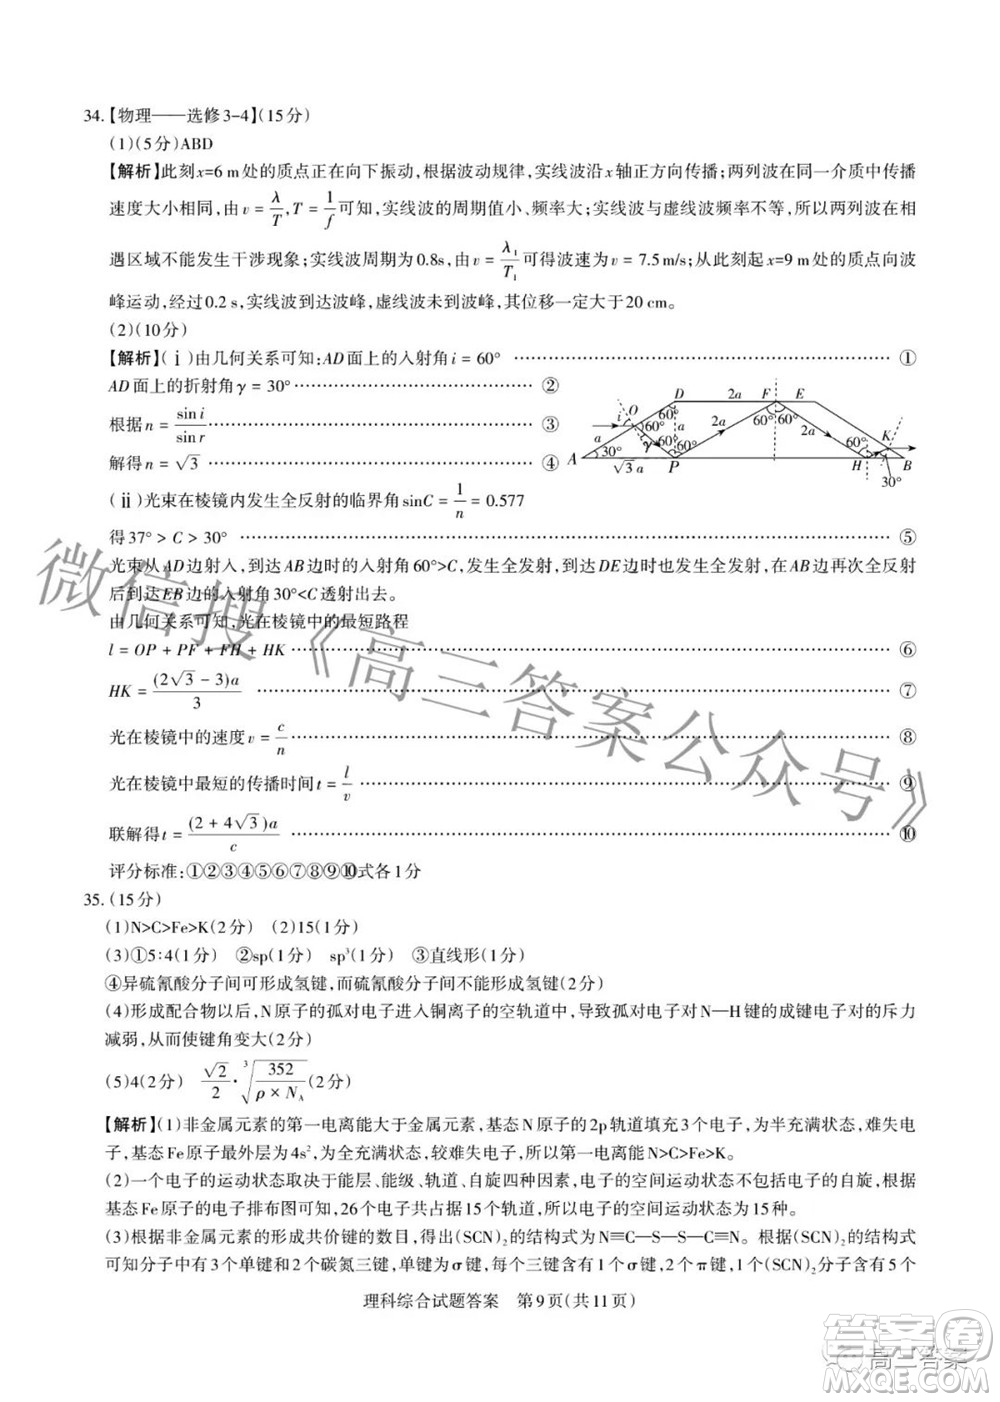 34.【物理——选修3-4】(15分)
(1)(5分)ABD
【解析】此刻x=6 m处的质点正在向下振动,根据波动规律,实线波沿x轴正方向传播;两列波在同一介质中传播
速度大小相同,由v = λ/T,T = 1/f可知,实线波的周期值小、频率大;实线波与虚线波频率不等,所以两列波在相
遇区域不能发生干涉现象;实线波周期为0.8s,由v = λ₁/T₁可得波速为v = 7.5 m/s;从此刻起x=9 m处的质点向波
峰运动,经过0.2 s,实线波到达波峰,虚线波未到波峰,其位移一定大于20 cm。
(2)(10分)
【解析】(ⅰ)由几何关系可知:AD面上的入射角i = 60° …… ①
AD面上的折射角γ = 30° …… ②
根据n = sin i/sin r …… ③
解得n = √3 …… ④
D 2a F E
O i 60° 60° a 2a 60° 60° 2a K
a A 30° γ 60° 60° 60° B
√3 a P H 30°
(ⅱ)光束在棱镜内发生全反射的临界角sinC = 1/n = 0.577
得37° > C > 30° …… ⑤
光束从AD边射入,到达AB边时的入射角60°>C,发生全发射,到达DE边时也发生全发射,在AB边再次全发射
后到达EB边的入射角30°<C透射出去。
由几何关系可知,光在棱镜中的最短路程
l = OP + PF + FH + HK …… ⑥
HK = (2√3 - 3)a/3 …… ⑦
光在棱镜中的速度v = c/n …… ⑧
光在棱镜中最短的传播时间t = l/v …… ⑨
联解得t = (2 + 4√3)a/c …… ⑩
评分标准:①②③④⑤⑥⑦⑧⑨⑩式各1分
35.(15分)
(1)N>C>Fe>K(2分) (2)15(1分)
(3)①5:4(1分) ②sp(1分) sp³(1分) ③直线形(1分)
④异硫氰酸分子间可形成氢键,而硫氰酸分子间不能形成氢键(2分)
(4)形成配合物以后,N原子的孤对电子进入铜离子的空轨道,原来的孤对电子对N—H键的成键电子对的斥力
减弱,从而使键角变大(2分)
(5)4(2分) √2/2·³√(352/(ρ × N_A))(2分)
【解析】(1)非金属元素的第一电离能大于金属元素,基态N原子的2p轨道填充3个电子,为半充满状态,难失电
子,基态Fe原子最外层为4s²,为全充满状态,较难失电子,所以第一电离能N>C>Fe>K。
(2)一个电子的运动状态取决于能层、能级、轨道、自旋四种因素,电子的空间运动状态不包括电子的自旋,根据
基态Fe原子的电子排布图可知,26个电子共占据15个轨道,所以电子的空间运动状态为15种。
(3)根据非金属元素的共价键的数目,得出(SCN)₂的结构式为N≡C—S—S—C≡N。根据(SCN)₂的结构式
可知分子中有3个单键和2个碳氮三键,单键为σ键,每个三键有1个σ键,2个π键,1个(SCN)₂分子含有5个
理科综合试题答案 第9页(共11页)
微信搜《高三答案公众号》
答案卷
高三答案
MXQE.COM